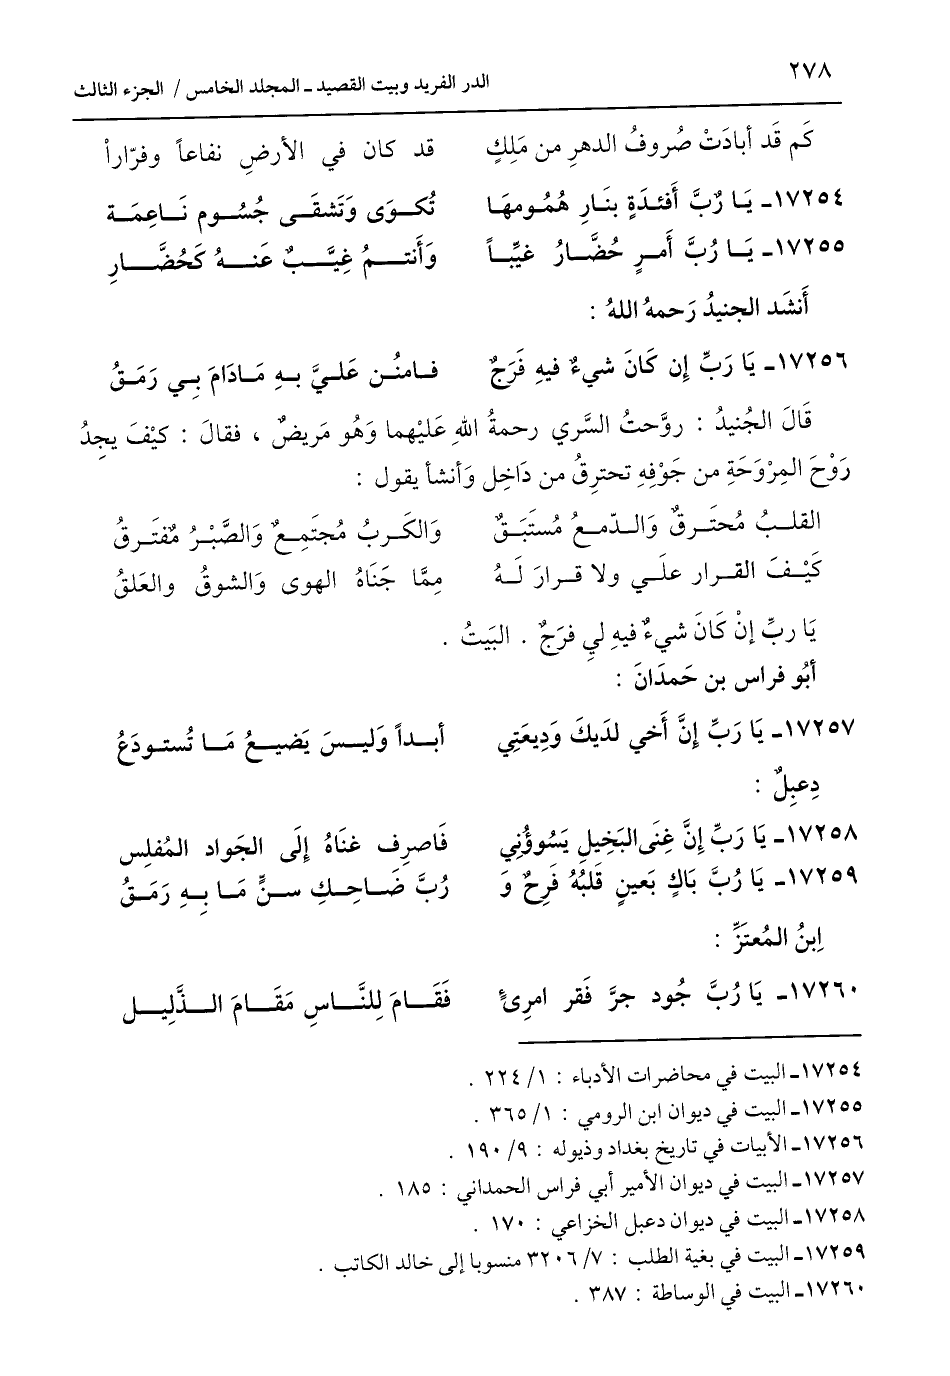 ٢٧٨ الدر الفريد وبيت القصيد ـ المجلد الخامس / الجزء الثالث
كَم قَد أبادَتْ صُروفُ الدهرِ من مَلِكٍ قد كان في الأرضِ نفاعاً وفرّاراْ
١٧٢٥٤ـ يَا رُبَّ أَفئدَةٍ بنَارِ هُمُومهَا تُكوَى وَتَشقَى جُسُوم نَاعِمَة
١٧٢٥٥ـ يَا رُبَّ أَمرٍ حُضَّارُ غيِّباً وَأَنتمُ غِيَّبٌ عَنهُ كَحُضَّارِ
أَنشَد الجنيدُ رَحمهُ اللهُ :
١٧٢٥٦ـ يَا رَبِّ إن كَانَ شيءٌ فيهِ فَرَجٌ فامنُن عَليَّ بهِ مَادَامَ بي رَمَقُ
قَالَ الجُنيدُ : روَّحتُ السَّري رحمةُ اللهِ عَليْهما وَهُو مَريضٌ ، فقالَ : كيْفَ يجدُ
رَوْحَ المِرْوَحَةِ من جَوْفِهِ تحترِقُ من دَاخِل وَأنشأ يقول :
القلبُ مُحتَرقٌ وَالدّمعُ مُستَبَقٌ وَالكَربُ مُجتَمِعٌ وَالصَّبْرُ مٌفتَرِقُ
كَيْفَ القرار علَي ولا قرارَ لَهُ مِمَّا جَنَاهُ الهوى وَالشوقُ والعَلقُ
يَا ربِّ إنْ كَانَ شيءٌ فيهِ لي فرَجٌ . البَيتُ .
أبُو فراس بن حَمدَانَ :
١٧٢٥٧ـ يَا رَبِّ إنَّ أَخي لدَيكَ وَدِيعَتِي أبداً وَليسَ يَضيعُ مَا تُستودَعُ
دِعبِلٌ :
١٧٢٥٨ـ يَا رَبِّ إنَّ غنَى البَخيلِ يَسُوؤُني فَاصرِف غنَاهُ إلَى الجَواد المُفلِس
١٧٢٥٩ـ يَا رُبَّ بَاكٍ بَعينٍ قَلبُهُ فَرِحٌ وَ رُبَّ ضَاحِكِ سنٍّ مَا بهِ رَمَقُ
اِبنُ المُعتَزِّ :
١٧٢٦٠ـ يَا رُبَّ جُود جرَّ فَقر امرِئٍ فَقَامَ لِلنَّاسِ مَقَامَ الذَّلِيل
١٧٢٥٤ـ البيت في محاضرات الأدباء : ١/ ٢٢٤ .
١٧٢٥٥ـ البيت في ديوان ابن الرومي : ١/ ٣٦٥ .
١٧٢٥٦ـ الأبيات في تاريخ بغداد وذيوله : ٩/ ١٩٠ .
١٧٢٥٧ـ البيت في ديوان الأمير أبي فراس الحمداني : ١٨٥ .
١٧٢٥٨ـ البيت في ديوان دعبل الخزاعي : ١٧٠ .
١٧٢٥٩ـ البيت في بغية الطلب : ٧/ ٣٢٠٦ منسوبا إلى خالد الكاتب .
١٧٢٦٠ـ البيت في الوساطة : ٣٨٧ .